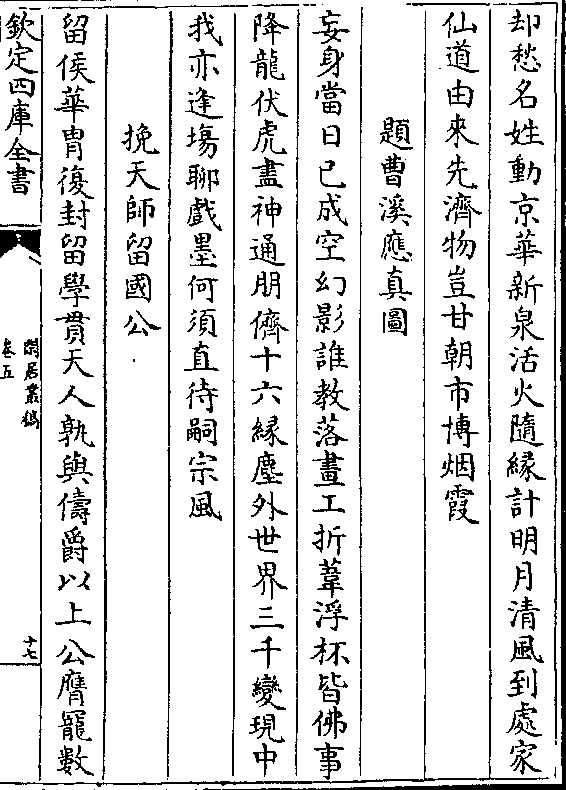 却愁名姓動京華新泉活火隨緣計明月清風到處家
仙道由來先濟物豈甘朝市博烟霞
題曹溪應真圖
妄身當日已成空幻影誰教落畫工折葦浮杯皆佛事
降龍伏虎盡神通朋儕十六緣塵外世界三千變現中
我亦逢塲聊戲墨何須直待嗣宗風
挽天師留國公
留侯華胄復封留學貫天人孰與儔爵以上公膺寵數
欽定四庫全書
閑居叢稿
卷五
十七